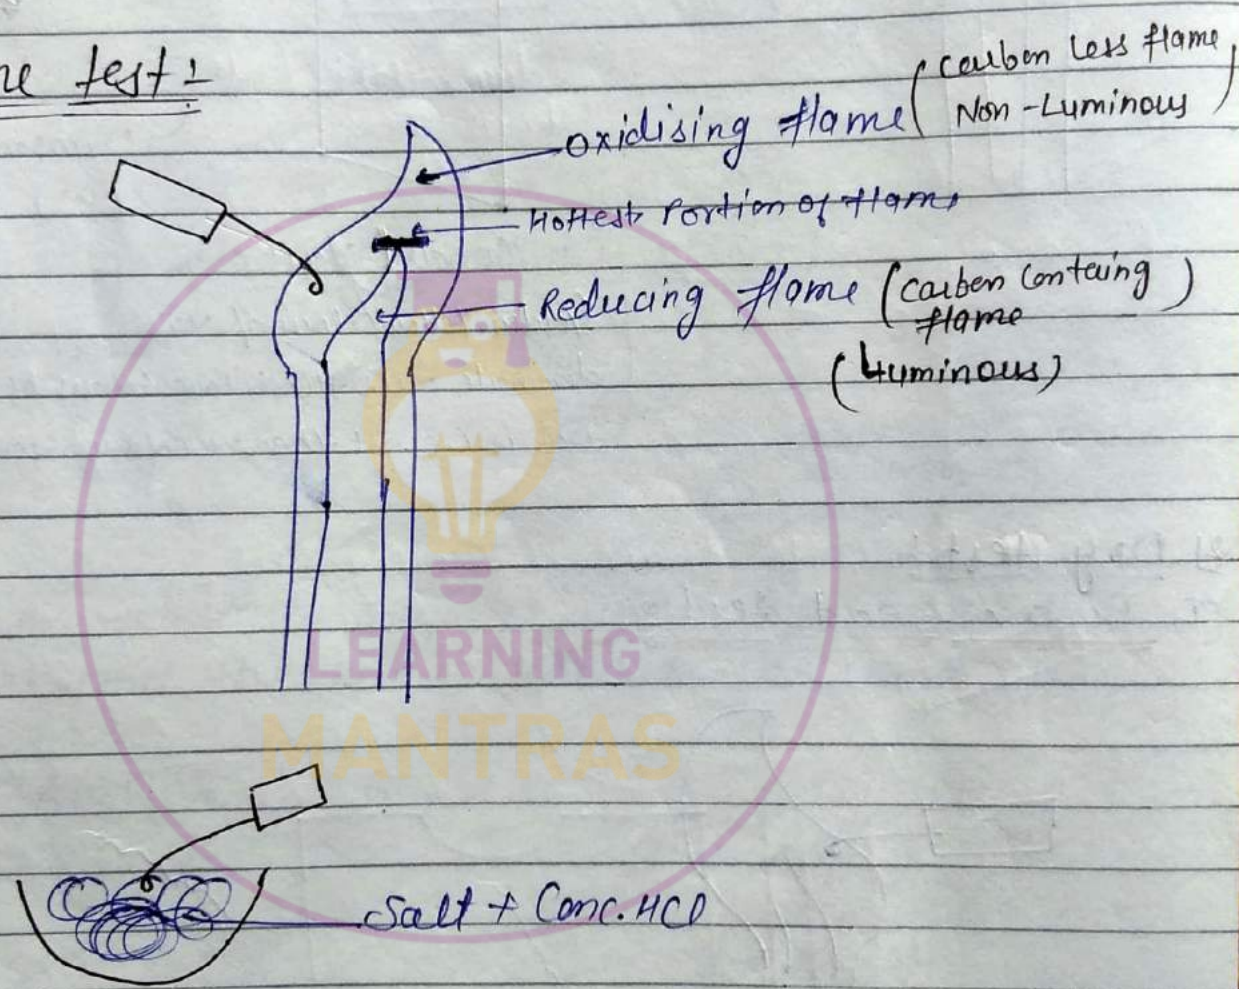 test :
Oxidising flame (Carbon Less flame
Non-Luminous)
Hottest Portion of flame
Reducing flame (Carbon Containg
flame)
(Luminous)
LEARNING
MANTRAS
Salt + Conc. HCl